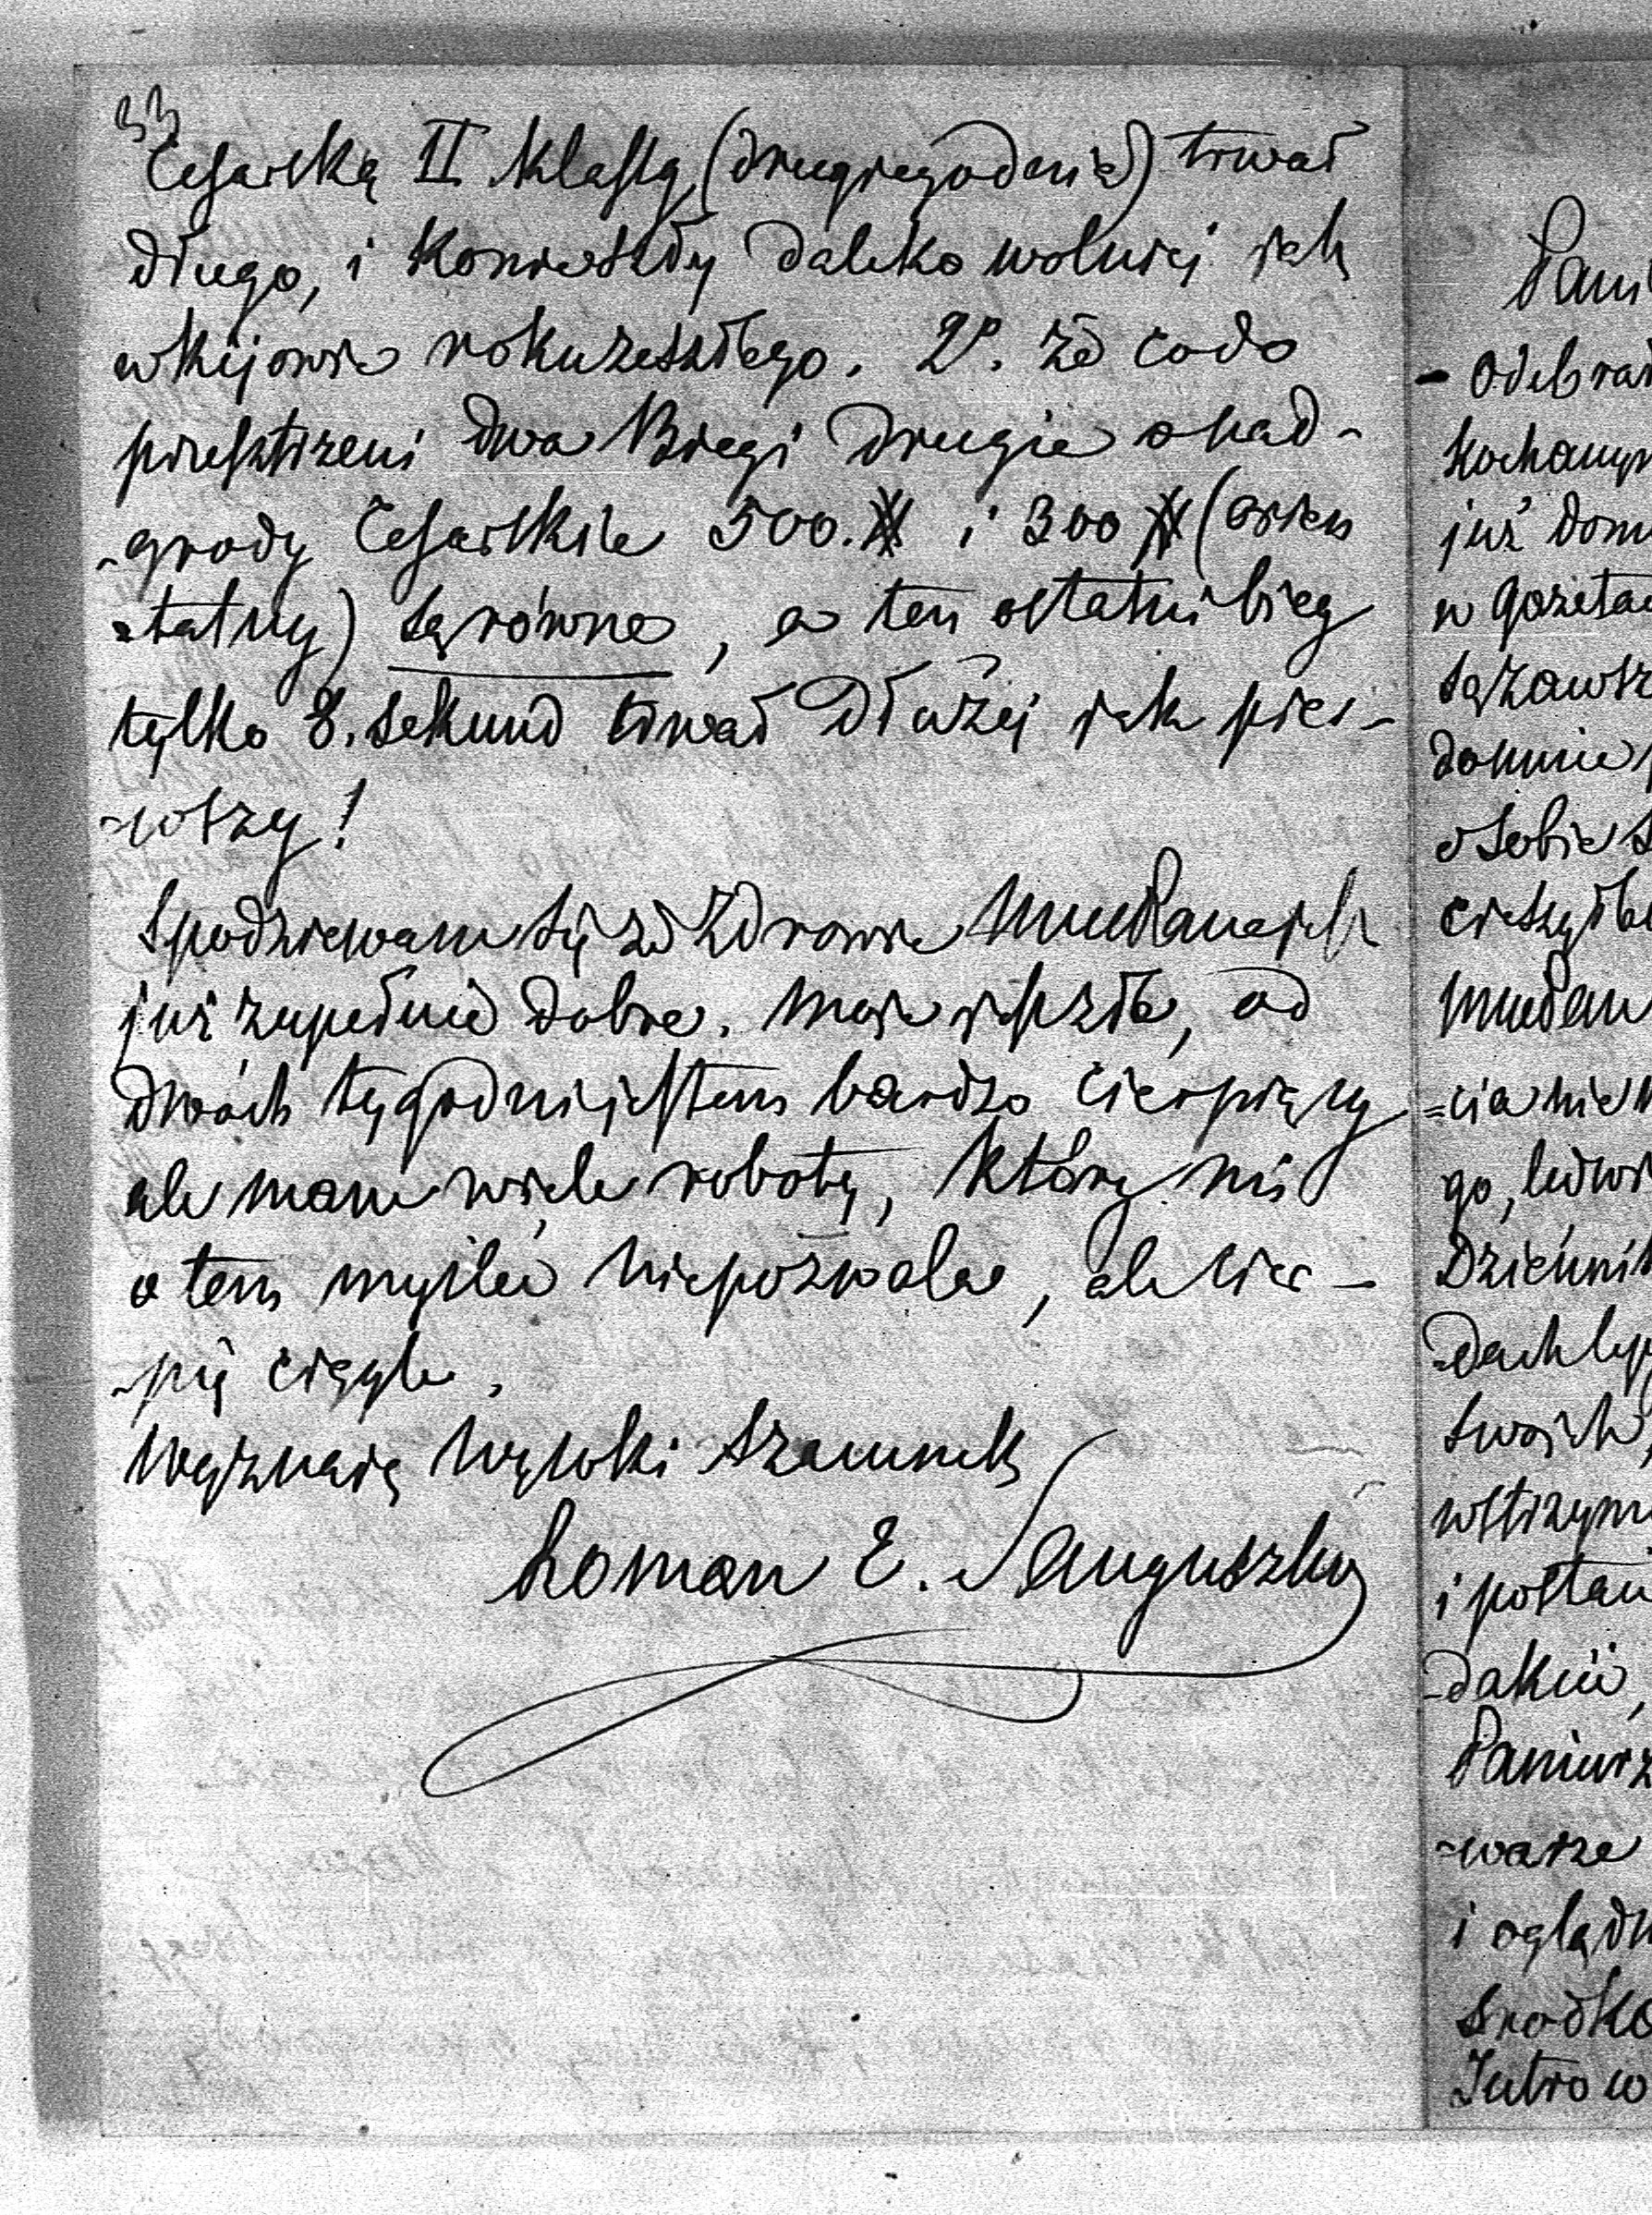 33
Cesarską II Klassy (drugiego dnia) trwał
długo, i Konie szły daleko wolniej jak
w Kijowie roku zeszłego. 2º. że co do
przestrzeni dwa Biegi drugie o nad-
-grody Cesarskie 500. i 300 (
statny) są równe, a ten ostatni bieg
tylko 8. sekund trwał dłużej jak pier-
-wszy!
Spodziewam się że Zdrowie
już zupełnie dobre. Moje od
dwóch tygodni jestem bardzo cierpiący
ale mam wiele roboty, która mi
o tem myśleć niepozwala, ale cier-
-pię ciągle.
Wyznaję wysoki szacunek
Roman E. Sanguszko
Pani
- Odebrał
Kochany
już
w Gazeta
są zawsz
o sobie
=cia nie
go, ledwi
Dzienni
swoich
wstrzym
i postan
-warze
i oglądn
srodko
Jutro w